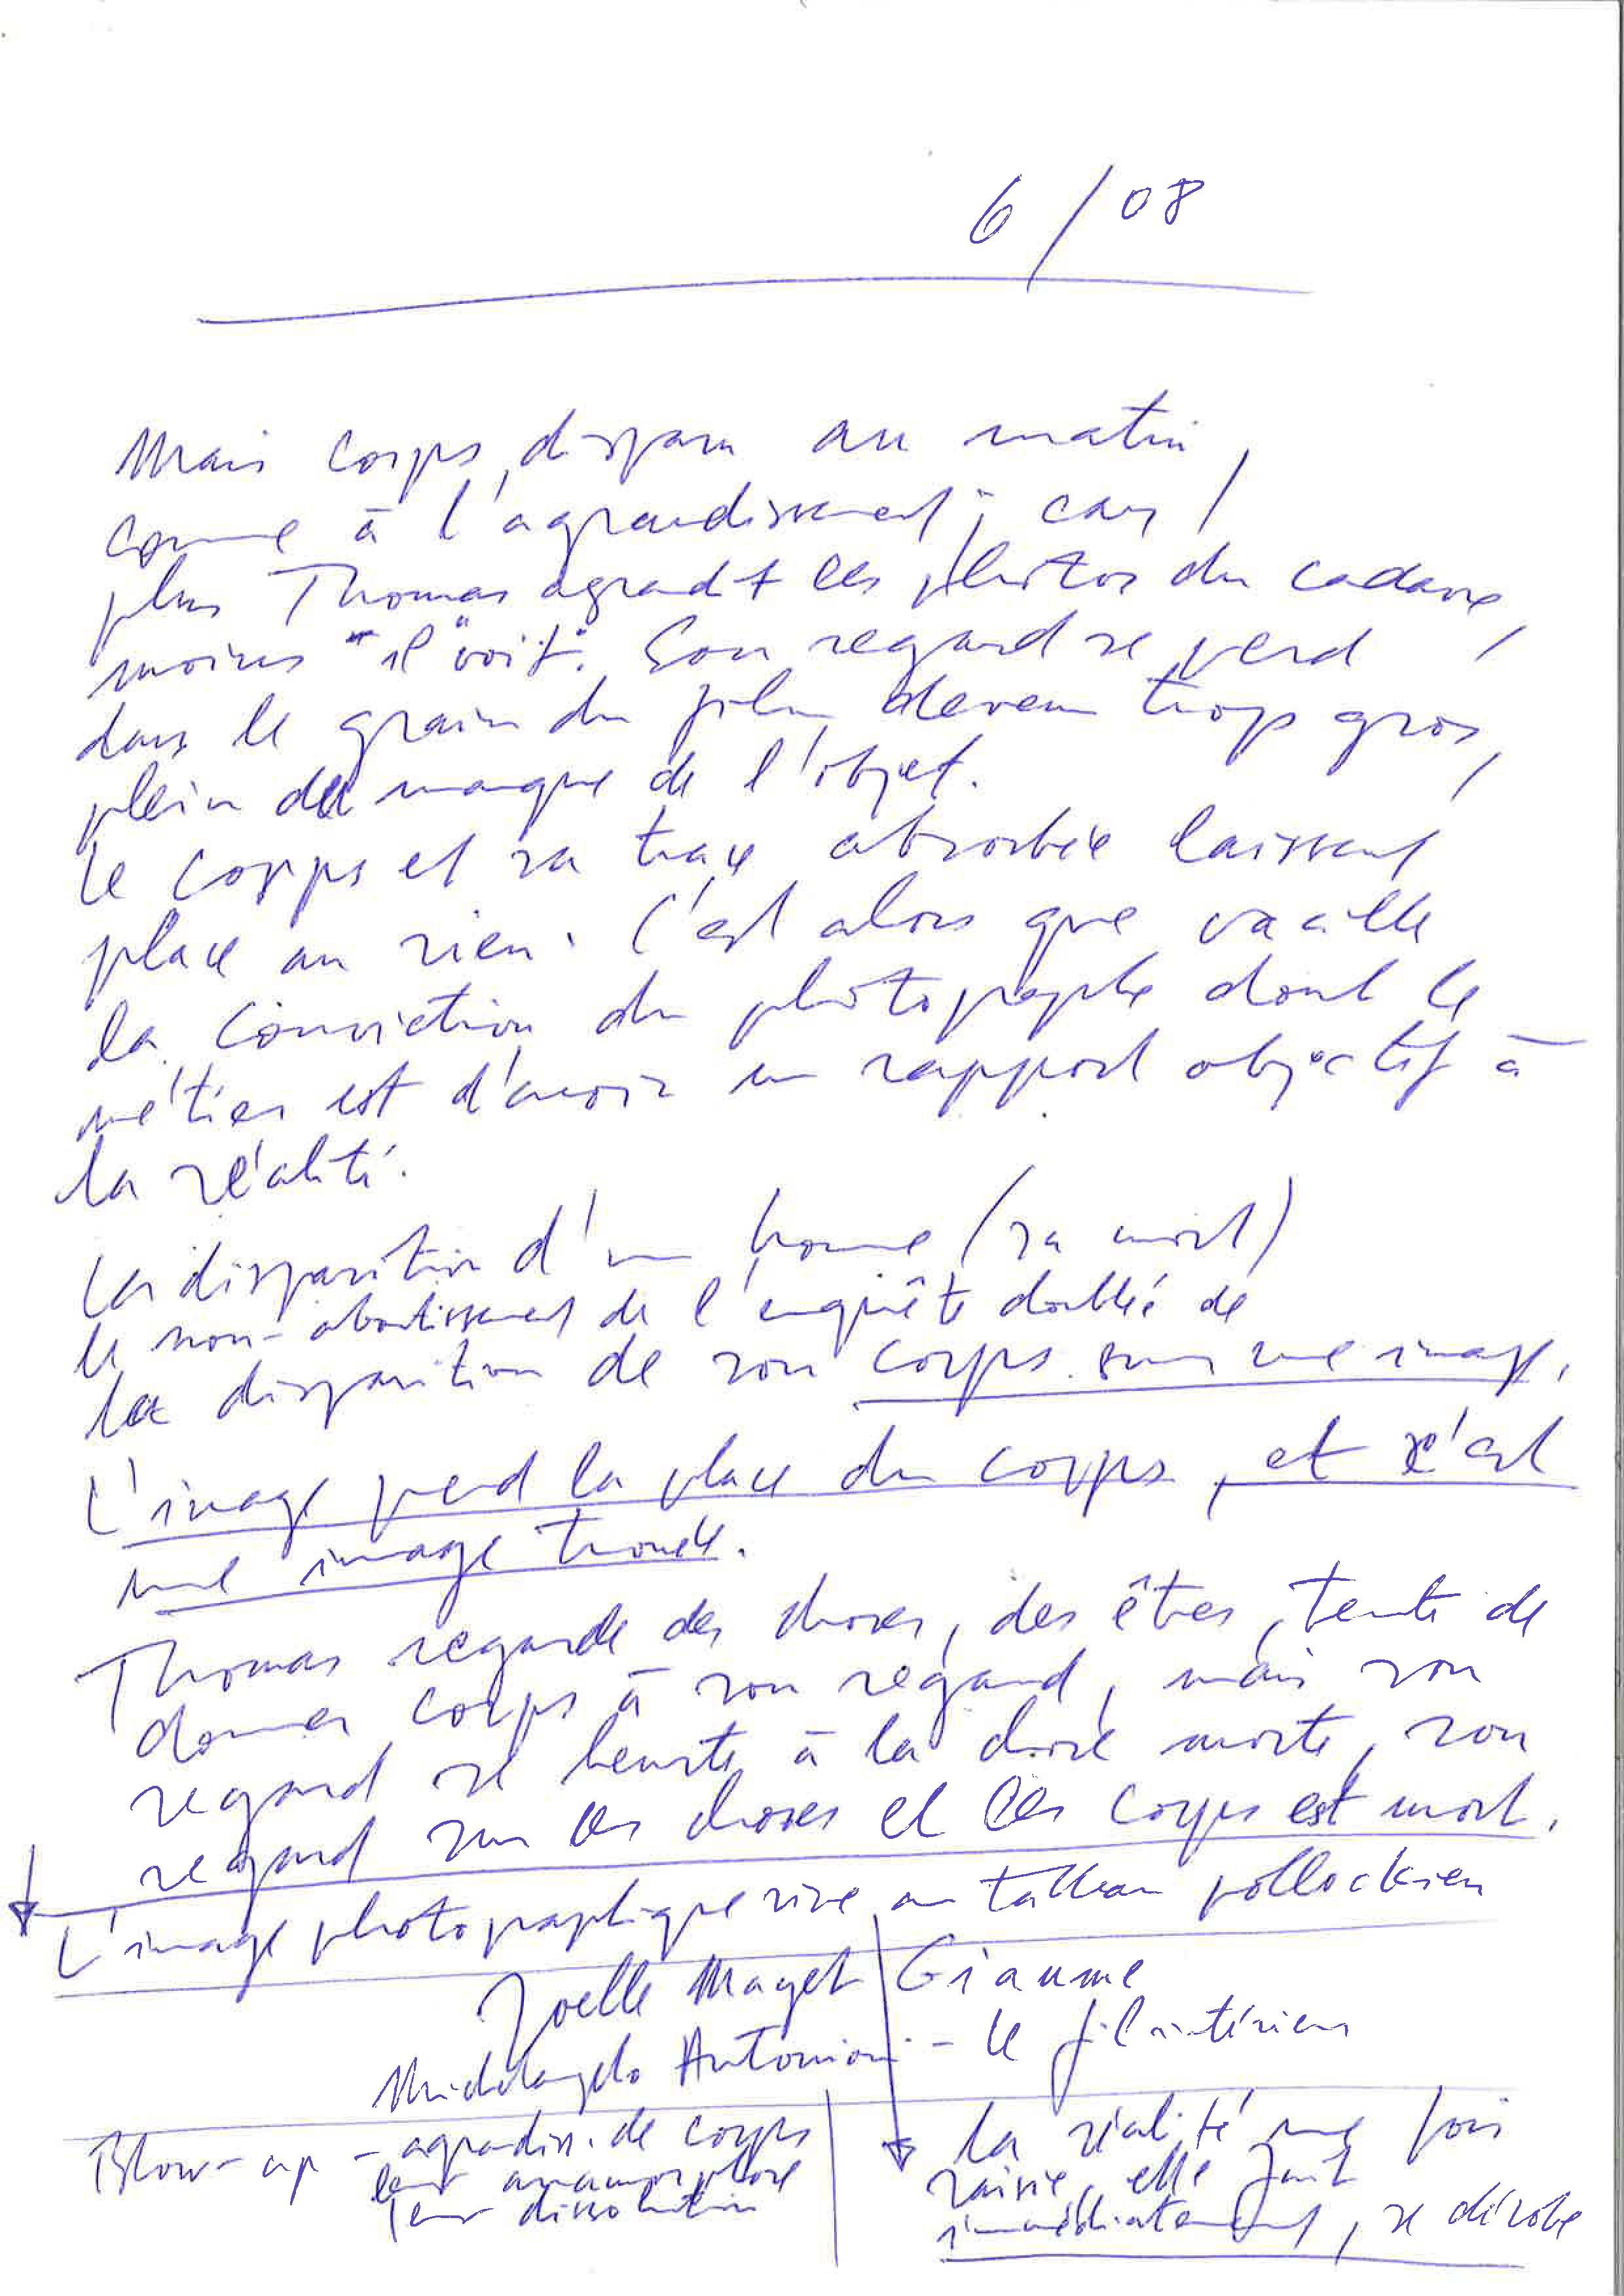 6/08
Mais corps disparu au matin,
comme à l'agrandissement; car
plus Thomas agrandit les photos du cadavre,
moins "il "voit". Son regard se perd
dans le grain du film devenu trop gros,
plein du manque de l'objet.
Le corps et sa trace absorbée laissent
place au rien. C'est alors que vacille
la conviction du photographe dont le
métier est d'avoir un rapport objectif à
la réalité.
La disparition d'un homme (sa mort)
le non-aboutissement de l'enquête doublée de
la disparition de son corps sur une image.
L'image perd la place du corps, et c'est
une image trouée.
Thomas regarde des choses, des êtres, tente de
donner corps à son regard, mais son
regard se heurte à la chose morte, son
regard sur les choses et les corps est mort.
L'image photographique vire au tableau pollockien
Joelle Mayet Giaume
Michelangelo Antonioni - le fil intérieur
Blow-up - agrandiss. de corps
leur anamorphose
leur dissolution
la réalité une fois
saisie, elle fuit
immédiatement, se dérobe